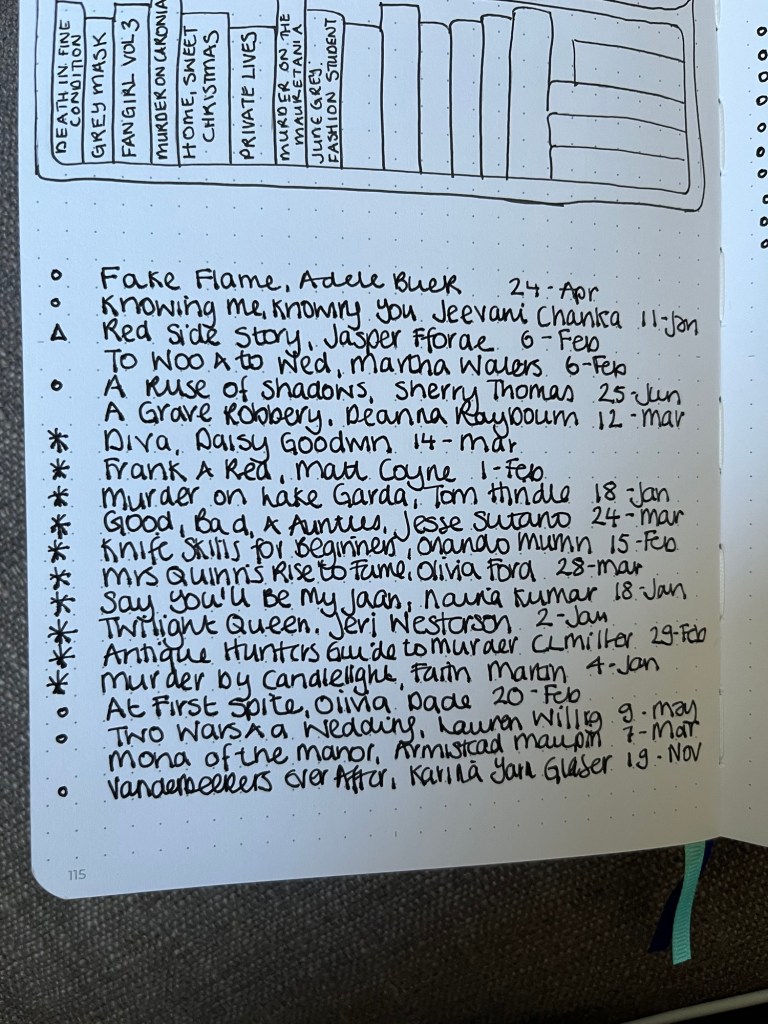 DEATH IN FINE
CONDITION
GREY MASK
FANGIRL VOL 3
MURDER ON CARONIA
HOME, SWEET
CHRISTMAS
PRIVATE LIVES
MURDER ON THE
MAURETANIA
JUNE GREY:
FASHION STUDENT
Fake Flame, Adele Buck 24-Apr
Knowing me, Knowing you Jeevani Charika 11-Jan
Red Side Story, Jasper Fforde 6-Feb
To Woo & to Wed, Martha Waters 6-Feb
A Ruse of Shadows, Sherry Thomas 25-Jun
A Grave Robbery, Deanna Raybourn 12-mar
Diva, Daisy Goodwin 14-mar
Frank & Red, Matt Coyne 1-Feb
Murder on Lake Garda, Tom Hindle 18-Jan
Good, Bad, & Aunties, Jesse Sutano 24-mar
Knife Skills for Beginners, Orlando Murrin 15-Feb
Mrs Quinn's Rise to Fame, Olivia Ford 28-mar
Say You'll Be My Jaan, Naina Kumar 18-Jan
Twilight Queen, Jeri Westerson 2-Jan
Antique Hunters Guide to Murder CL Miller 29-Feb
Murder by Candlelight, Faith Martin 4-Jan
At First Spite, Olivia Dade 20-Feb
Two Wars & a Wedding, Lauren Willig 9-may
Mona of the Manor, Armistead Maupin 7-Mar
Vanderbeekers Ever After, Karina Yan Glaser 19-Nov
115